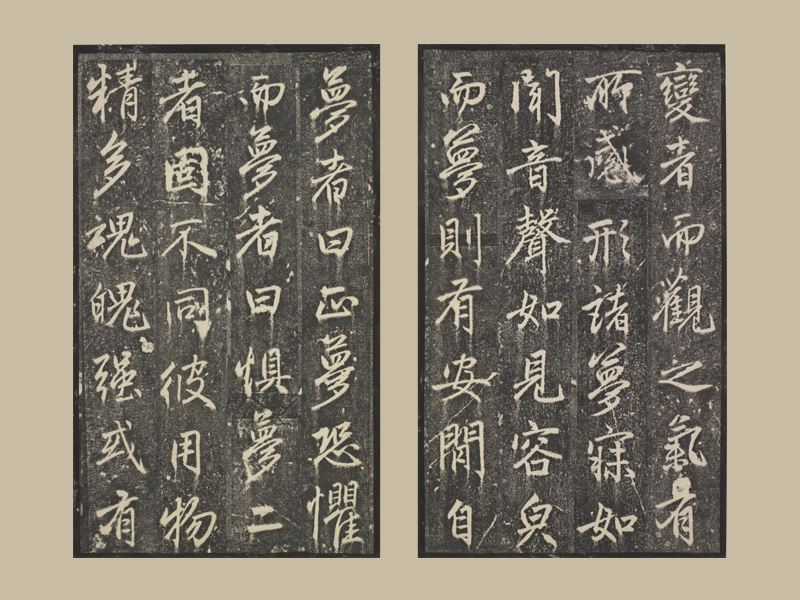 變者而觀之氣有
所感形諸夢寐如
聞音聲如見容皃
而夢則有安閒自
夢者曰正夢恐懼
而夢者曰惧夢二
者固不同彼用物
精多魂魄强或有